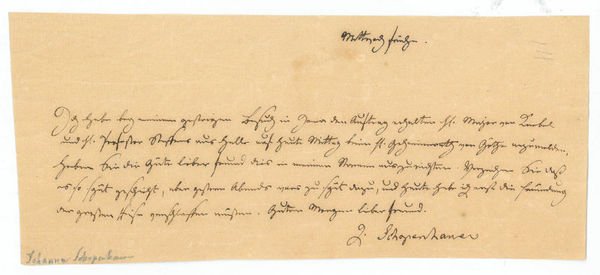 Mittwoch früh.
Ich habe bey meinem gestrigen Besuch in Jena den Auftrag erhalten H. Major von Knebel
und H. Professor Steffens aus Halle auf heute Mittag beim H. Geheimerath von Göthe anzumelden,
haben Sie die Güte lieber Freund dies in meinem Namen auszurichten. Verzeihen Sie daß
es so spät geschieht, aber gestern Abends war es zu spät dazu, und heute habe ich erst die
der großen verschlafen müßen. Guten Morgen lieber Freund.
J. Schopenhauer
Johanna Schopenhauer